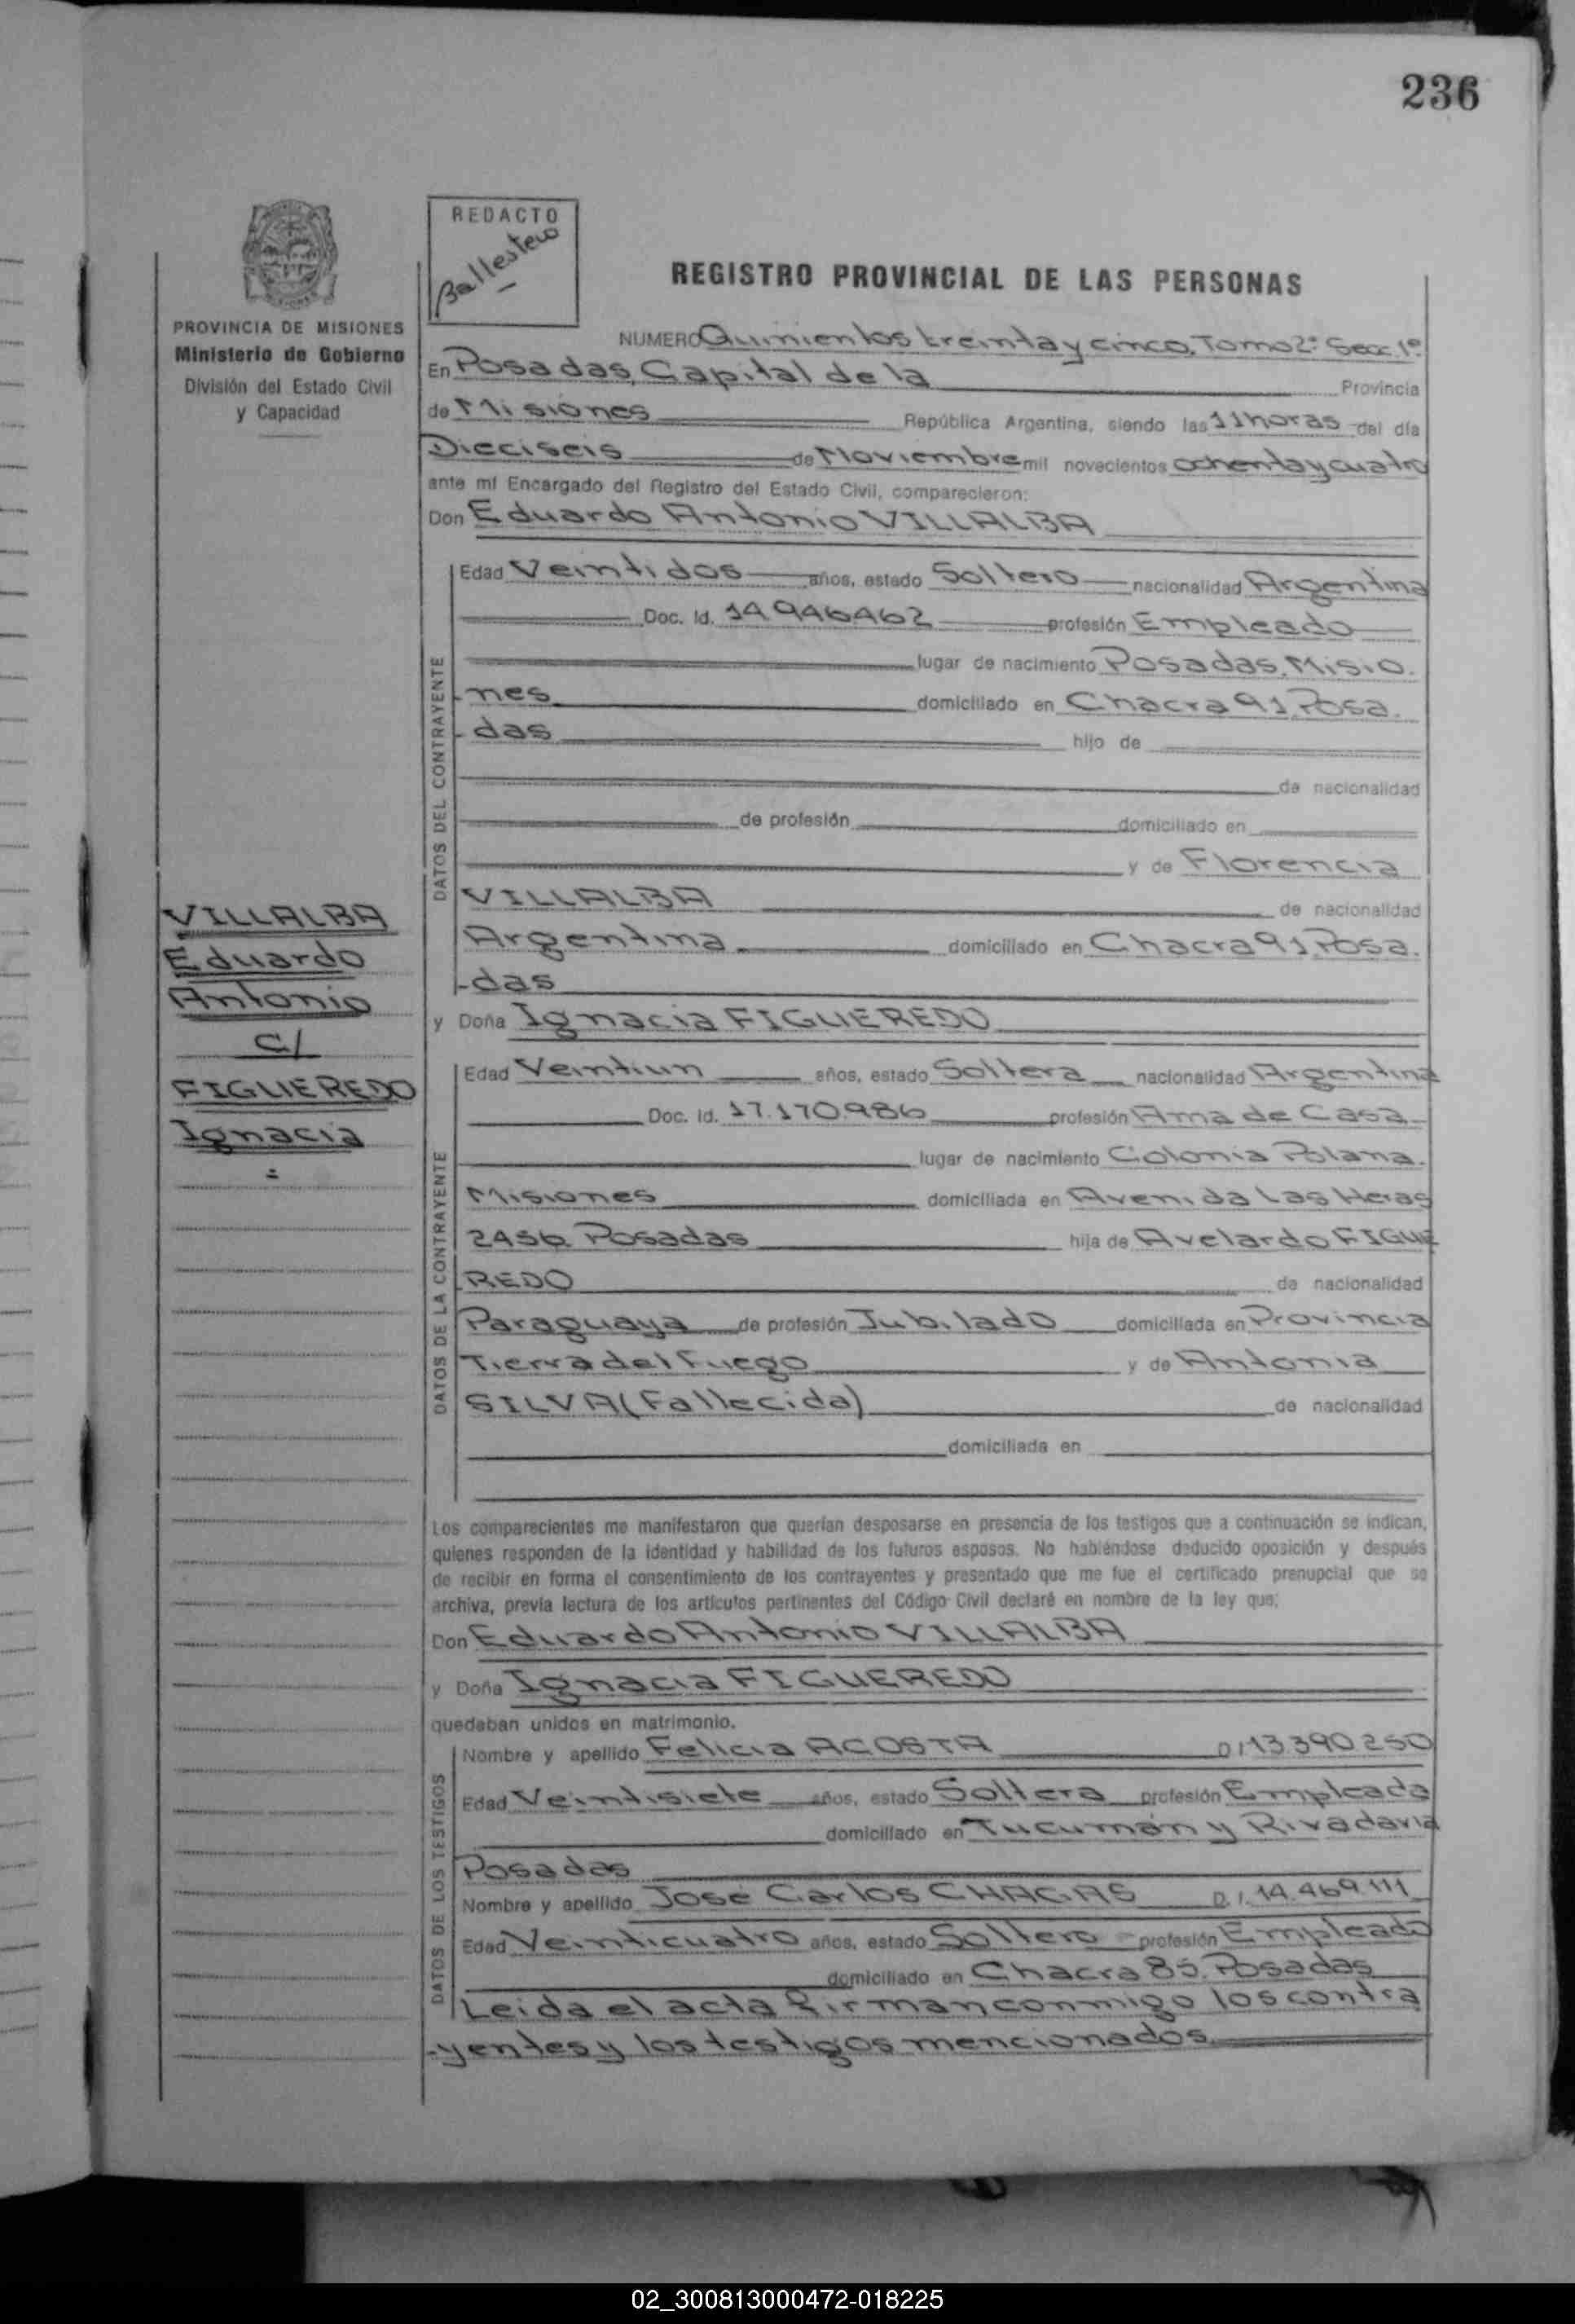 236
REDACTO
Ballestero
PROVINCIA DE MISIONES
Ministerio de Gobierno
División del Estado Civil
y Capacidad
REGISTRO PROVINCIAL DE LAS PERSONAS
NUMERO Quinientos treinta y cinco. Tomo 2º Secc 1º
En Posadas, Capital de la Provincia
de Misiones República Argentina, siendo las 11 horas del día
Dieciseis de Noviembre mil novecientos ochenta y cuatro
ante mí Encargado del Registro del Estado Civil, comparecieron:
Don Eduardo Antonio VILLALBA
DATOS DEL CONTRAYENTE
Edad Veintidos años, estado Soltero nacionalidad Argentina
Doc. Id. 14.946462 profesión Empleado
lugar de nacimiento Posadas, Misio.
-nes domiciliado en Chacra 91, Posa.
-das hijo de
de nacionalidad
de profesión domiciliado en
y de Florencia
VILLALBA de nacionalidad
Argentina domiciliado en Chacra 91, Posa.
-das
y Doña Ignacia FIGUEREDO
DATOS DE LA CONTRAYENTE
Edad Veintiun años, estado Soltera nacionalidad Argentina
Doc. Id. 17.170.986 profesión Ama de Casa
lugar de nacimiento Colonia Polana.
Misiones domiciliada en Avenida Las Heras
2456. Posadas hija de Avelardo FIGUE
REDO de nacionalidad
Paraguaya de profesión Jubilado domiciliada en Provincia
Tierra del Fuego y de Antonia
SILVA (Fallecida) de nacionalidad
domiciliada en
VILLALBA
Eduardo
Antonio
C/
FIGUEREDO
Ignacia
Los comparecientes me manifestaron que querían desposarse en presencia de los testigos que a continuación se indican,
quienes responden de la identidad y habilidad de los futuros esposos. No habiéndose deducido oposición y después
de recibir en forma el consentimiento de los contrayentes y presentado que me fue el certificado prenupcial que se
archiva, previa lectura de los artículos pertinentes del Código Civil declaré en nombre de la ley que:
Don Eduardo Antonio VILLALBA
y Doña Ignacia FIGUEREDO
quedaban unidos en matrimonio.
DATOS DE LOS TESTIGOS
Nombre y apellido Felicia ACOSTA D.I 13.390.250
Edad Veintisiete años, estado Soltera profesión Empleada
domiciliado en Tucumán y Rivadavia
Posadas
Nombre y apellido José Carlos CHAGAS D.I. 14.469.111
Edad Veinticuatro años, estado Soltero profesión Empleado
domiciliado en Chacra 85. Posadas
Leida el acta firman conmigo los contra
-yentes y los testigos mencionados.
02_300813000472-018225